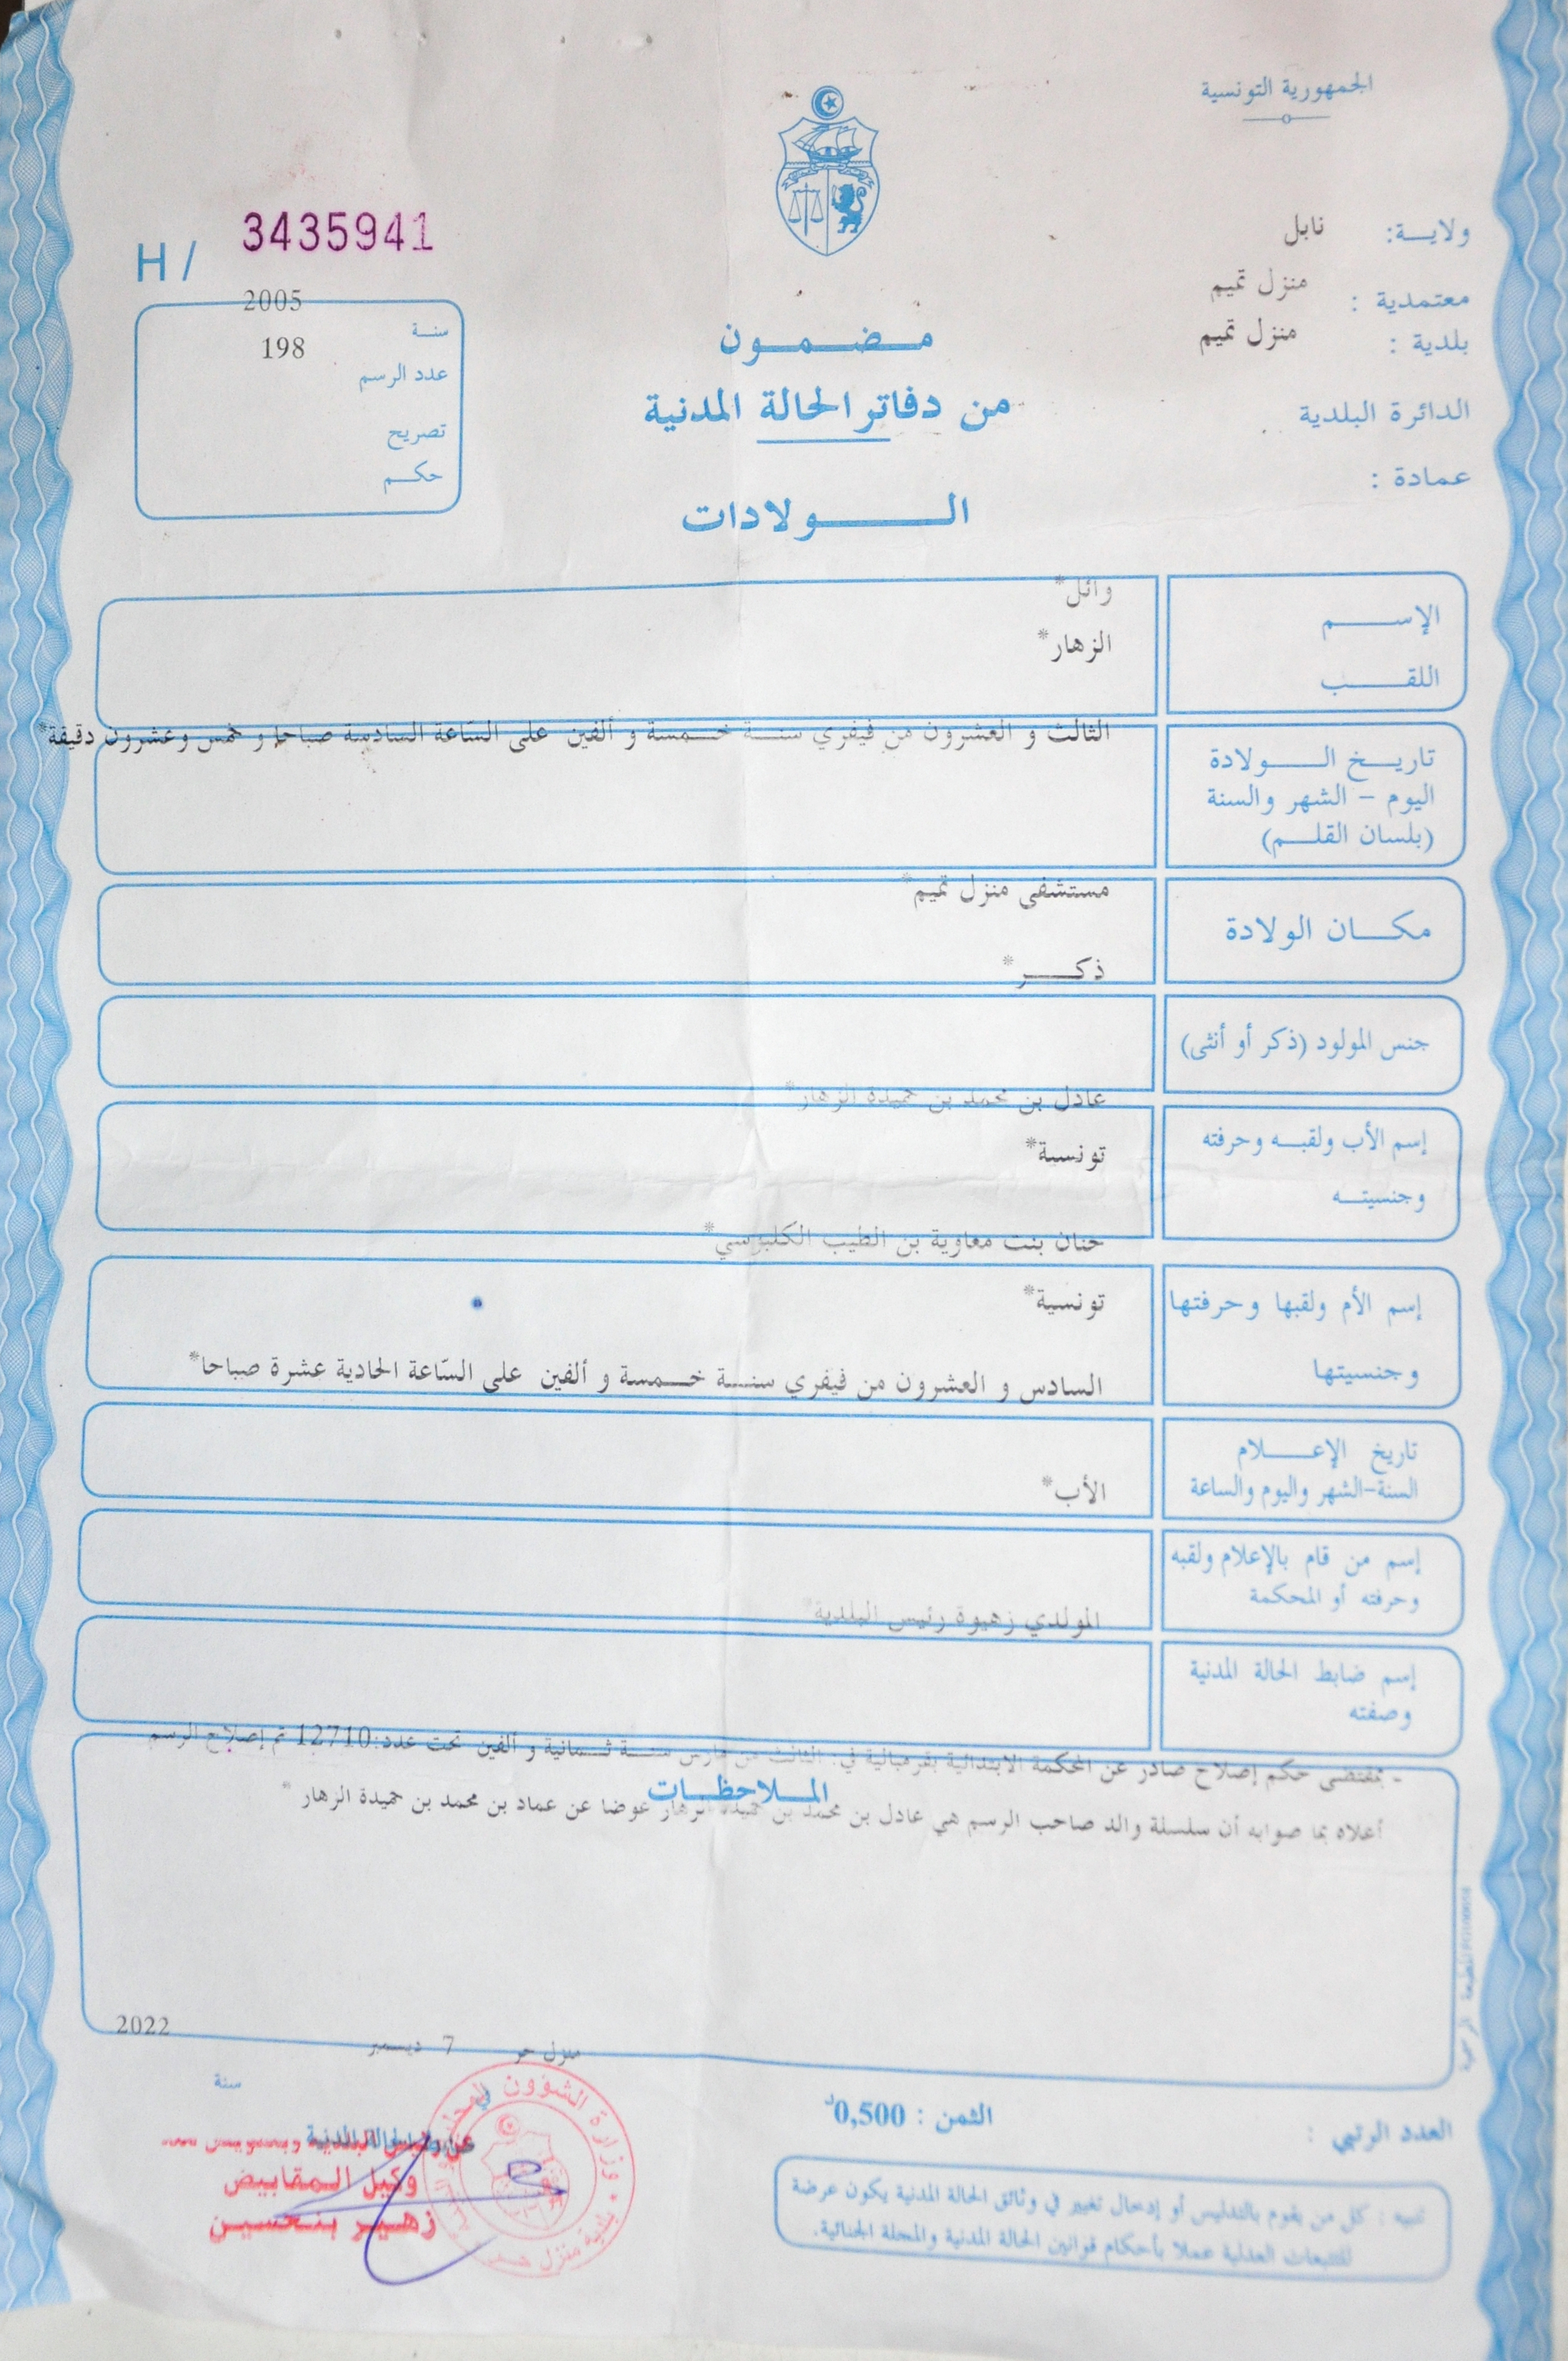 الجمهورية التونسية
ولايـــة: نابل
معتمدية : منزل تميم
بلدية : منزل تميم
الدائرة البلدية
عمادة :
H/ 3435941
2005
سنـــة
198
عدد الرسم
تصريح
حكـــم
مـــضـــمـــون
من دفاتر الحالة المدنية
الـــــولادات
الإســـــم
وائل*
اللقـــــب
الزهار*
تاريـــخ الـــــولادة
اليوم - الشهر والسنة
(بلسان القلـــم)
الثالث و العشرون من فيفري سنـــة خـــمسة و ألفين على السّاعة السادسة صباحا و خمس وعشرون دقيقة*
مكـــان الولادة
مستشفى منزل تميم*
ذكـــر*
جنس المولود (ذكر أو أنثى)
عادل بن محمد بن حميدة الزهار*
إسم الأب ولقبـــه وحرفته
وجنسيتـــه
تونسية*
حنان بنت معاوية بن الطيب الكلبوسي*
إسم الأم ولقبها وحرفتها
وجنسيتها
تونسية*
السادس و العشرون من فيفري سنـــة خـــمسة و ألفين على السّاعة الحادية عشرة صباحا*
تاريخ الإعـــــلام
السنة-الشهر واليوم والساعة
الأب*
إسم من قام بالإعلام ولقبه
وحرفته أو المحكمة
المولدي زهيوة رئيس البلدية*
إسم ضابط الحالة المدنية
وصفته
- بمقتضى حكم إصلاح صادر عن المحكمة الابتدائية بقرمبالية في: الثالث من مارس سنـــة ثـــمانية و ألفين تحت عدد:12710 تم إصلاح الرسم
المـــلاحظـــات
أعلاه بما صوابه أن سلسلة والد صاحب الرسم هي عادل بن محمد بن حميدة الزهار عوضا عن عماد بن محمد بن حميدة الزهار *
منزل حر 7 ديسمبر 2022
في سنة
العدد الرتبي :
الثمن : 0,500د
وكيل المقابيض
زهير بنحسين
تنبيه : كل من يقوم بالتدليس أو إدخال تغيير في وثائق الحالة المدنية يكون عرضة
للتتبعات العدلية عملا بأحكام قوانين الحالة المدنية والمجلة الجنائية.